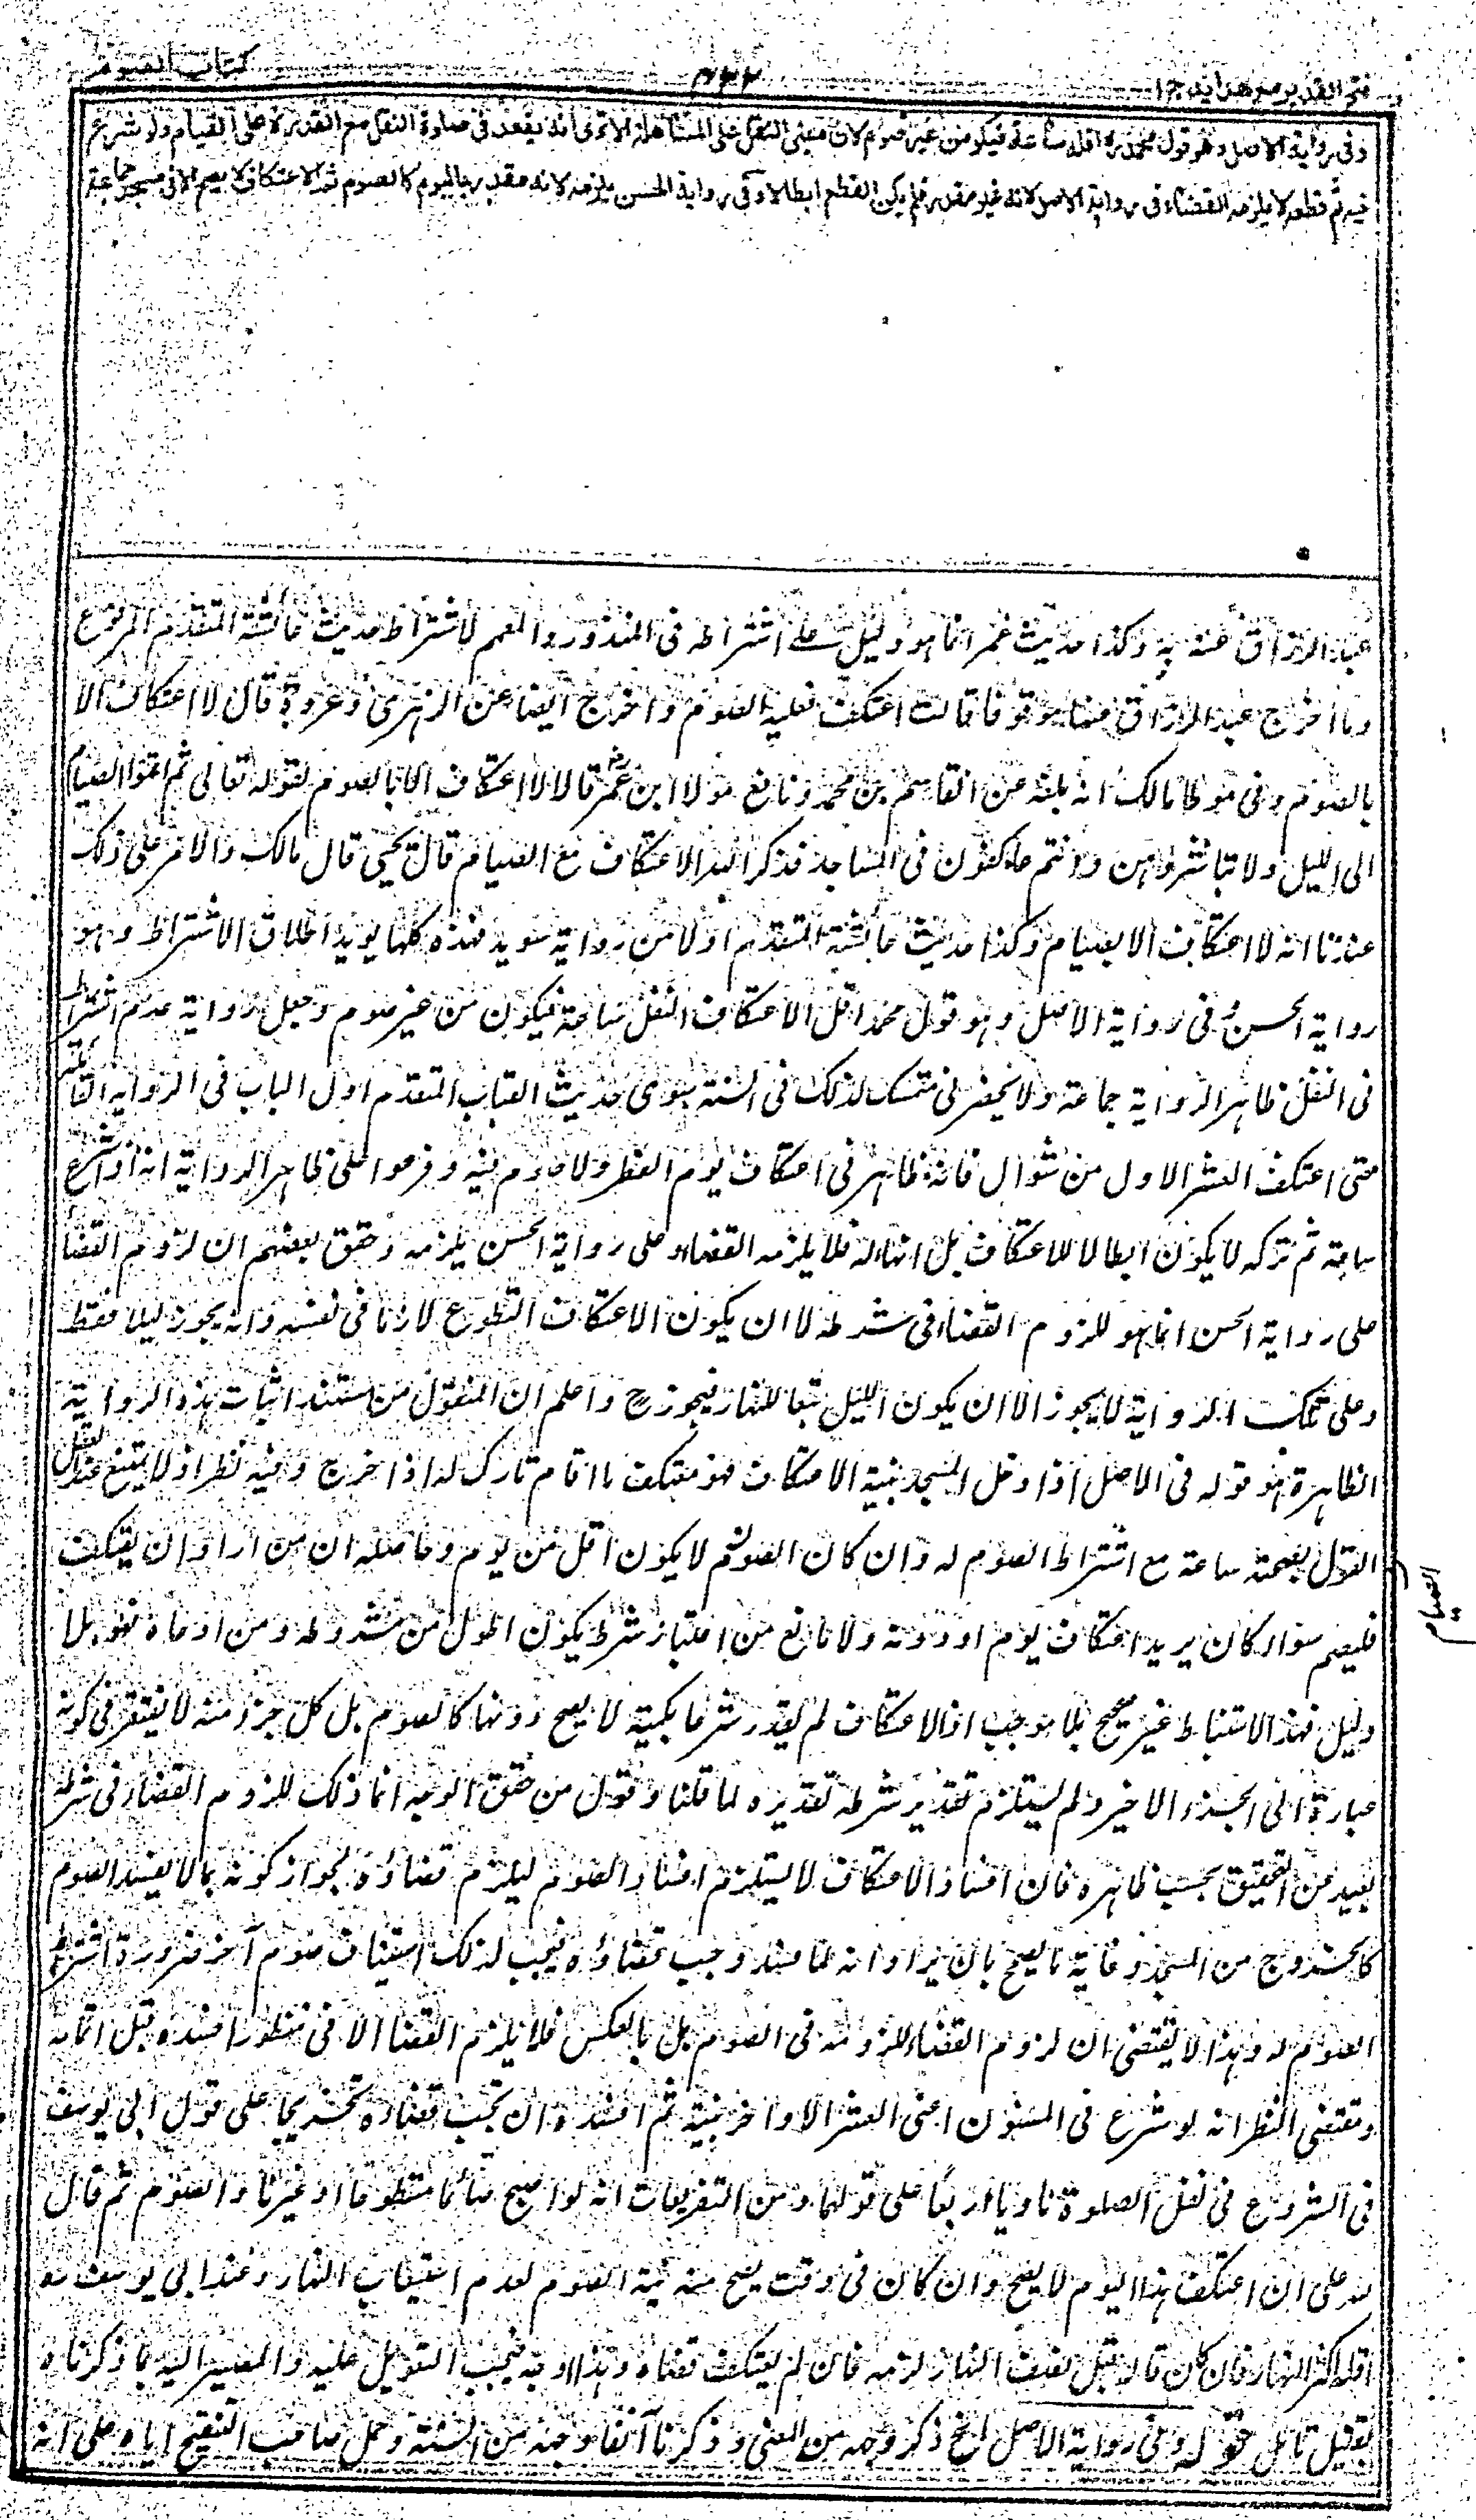 فتح القدير مع هداية ج ١
٧٤٤
كتاب الصوم
وفي رواية الاصل وهو قول محمد رح اقله ساعة فيكون من غير صوم لان مبنى النفل على المساهلة الا ترى انه يقعد في صلوة النفل مع القدرة على القيام ولو شرع
فيه ثم قطعه لا يلزمه القضاء في رواية الاصل لانه غير مقدر فلم يكن القطع ابطالا وفي رواية الحسن يلزمه لانه مقدر باليوم كالصوم ثم الاعتكاف لا يصح الا في مسجد جماعة
عبد الرزاق عنه به وكذا حديث عمر انما هو دليل على اشتراطه في المنذور والمعمم لاشتراط حديث عائشة المتقدم المرفوع
وما اخرج عبد الرزاق عنها موقوفا قالت من اعتكف فعليه الصوم واخرج ايضا عن الزهري وعروة قال لا اعتكاف الا
بالصوم وفي موطا مالك انه بلغه عن القاسم بن محمد ونافع مولا ابن عمر قالا لا اعتكاف الا بالصوم لقوله تعالى ثم اتموا الصيام
الى الليل ولا تباشروهن وانتم عاكفون في المساجد فذكر الله الاعتكاف مع الصيام قال يحيى قال مالك والامر على ذلك
عندنا انه لا اعتكاف الا بصيام وكذا حديث عائشة المتقدم اولا من رواية سويد فهذه كلها يويد اطلاق الاشتراط وهو
رواية الحسن وفي رواية الاصل وهو قول محمد اقل الاعتكاف النفل ساعة فيكون من غير صوم وجعل رواية عدم اشتراطه
في النفل ظاهر الرواية جماعة ولا يحضرني متمسك لذلك في السنة سوى حديث القباب المتقدم اول الباب في الرواية القائلة
حتى اعتكف العشر الاول من شوال فانه ظاهر في اعتكاف يوم الفطر ولا صوم فيه وفرعوا على ظاهر الرواية انه اذا شرع
ساعة ثم تركه لا يكون ابطالا للاعتكاف بل انهاء له فلا يلزمه القضاء وعلى رواية الحسن يلزمه وحقق بعضهم ان لزوم القضا
على رواية الحسن انما هو للزوم القضاء في شرطه لا ان يكون الاعتكاف التطوع لازما في نفسه وانه يجوز ليلا فقط
وعلى تلك الرواية لا يجوز الا ان يكون الليل تبعا للنهار فيجوز ح واعلم ان المنقول من مستند اثبات هذه الرواية
الظاهرة هو قوله في الاصل اذا دخل المسجد بنية الاعتكاف فهو معتكف ما اقام تارك له اذا خرج وفيه نظر اذ لا يمتنع عند العقل
القول بصحته ساعة مع اشتراط الصوم له وان كان الصوم لا يكون اقل من يوم وحاصله ان من اراد ان يعتكف
فليصم سواء كان يريد اعتكاف يوم او دونه ولا مانع من اعتبار شرط يكون اطول من مشروطه ومن ادعاه فهو بلا
دليل فهذا الاستنباط غير صحيح بلا موجب اذ الاعتكاف لم يقدر شرعا بكمية لا يصح دونها كالصوم بل كل جزء منه لا يفتقر في كونه
عبادة الى الجزء الاخير ولم يستلزم تقدير شرطه تقديره لما قلنا وقول من حقق الوجه انما ذلك للزوم القضاء في شرطه
بعيد من التحقيق بحسب ظاهره فان افساد الاعتكاف لا يستلزم افساد الصوم ليلزم قضاؤه لجواز كونه بما لا يفسد الصوم
كالخروج من المسجد وغاية ما يصح بان يراد انه لما فسد وجب قضاؤه فيجب لذلك استيناف صوم آخر ضرورة اشتراط
الصوم له وهذا لا يقتضي ان لزوم القضاء للزومه في الصوم بل بالعكس فلا يلزم القضا الا في منذور افسده قبل اتمامه
ومقتضى النظر انه لو شرع في المسنون اعني العشر الاواخر بنيته ثم افسده ان يجب قضاؤه تخريجا على قول ابي يوسف
في الشروع في نفل الصلوة ناويا اربعا على قولهما ومن التفريعات انه لو اصبح صائما متطوعا او غير ناو الصوم ثم قال
لله على ان اعتكف هذا اليوم لا يصح وان كان في وقت يصح منه نية الصوم لعدم استيعاب النهار وعند ابي يوسف رح
اقله اكثر النهار فان كان قاله قبل نصف النهار لزمه فان لم يعتكف قضاه وهذا اوجه فيجب التعويل عليه والمصير اليه بما ذكرناه
بقليل تامل قوله وفي رواية الاصل الخ ذكر وجهه من المعنى وذكرنا آنفا وجهه من السنة وحمل صاحب التنقيح اياه على انه
الصيام